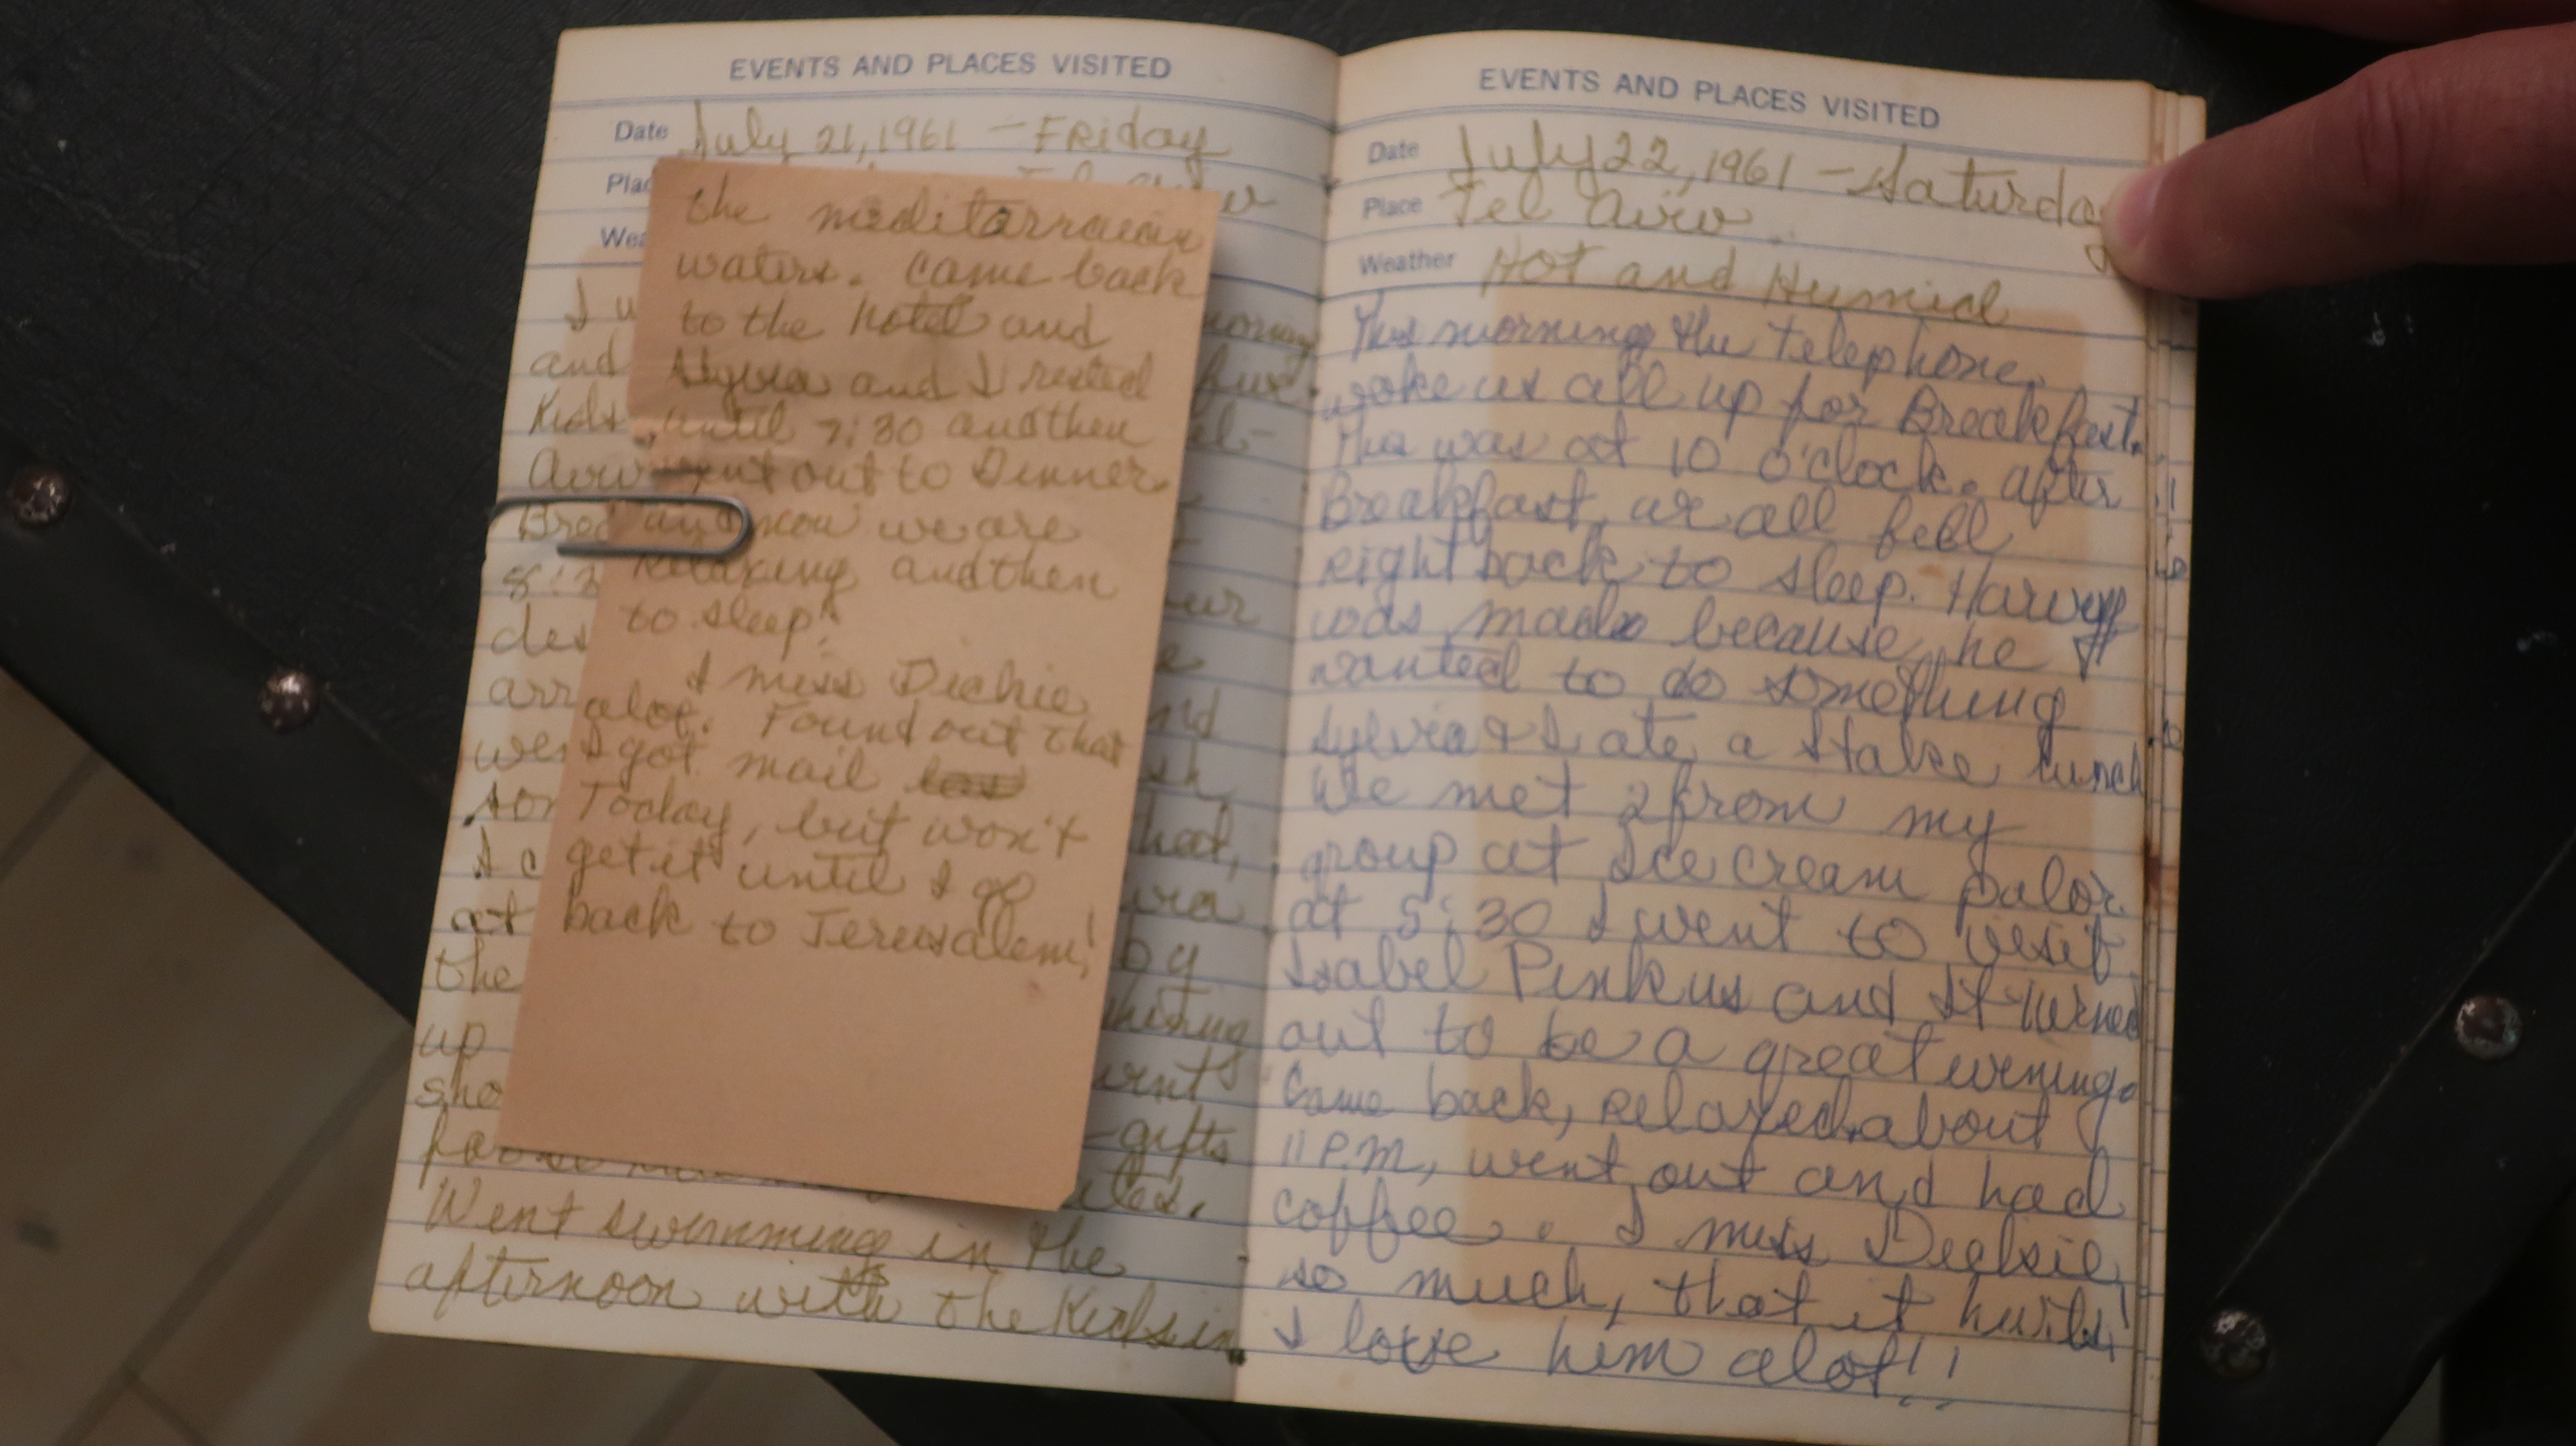 EVENTS AND PLACES VISITED
Date July 21, 1961 - Friday
Plac
Wea
I w
and
Kids
Aviv
Brea
5:
des
arr
wen
son
I c
at
the
up
sho
for
-gifts
Went swimming in the
afternoon with the Kids in
the meditarraean
waters. Came back
to the hotel and
Sylvia and I rested
until 7:30 and then
went out to Dinner
and now we are
Relaxing and then
to sleep!
I miss Dickie
alot. Found out that
I got mail
Today, but won't
get it until I go
back to Jerusalem!
EVENTS AND PLACES VISITED
Date July 22, 1961 - Saturday
Place Tel Aviv
Weather Hot and Humid
This morning the telephone
woke us all up for Breakfast.
This was at 10 o'clock. after
Breakfast, we all fell
right back to sleep. Harvey
was mad because he
wanted to do something
Sylvia & I ate a Stake lunch
We met 2 from my
group at Ice cream palor.
at 5:30 I went to visit
Isabel Pinkus and It turned
out to be a great evening.
Came back, relaxed, about
11 P.M, went out and had
coffee. I miss Dickie
so much, that it hurts!
I love him alot!!